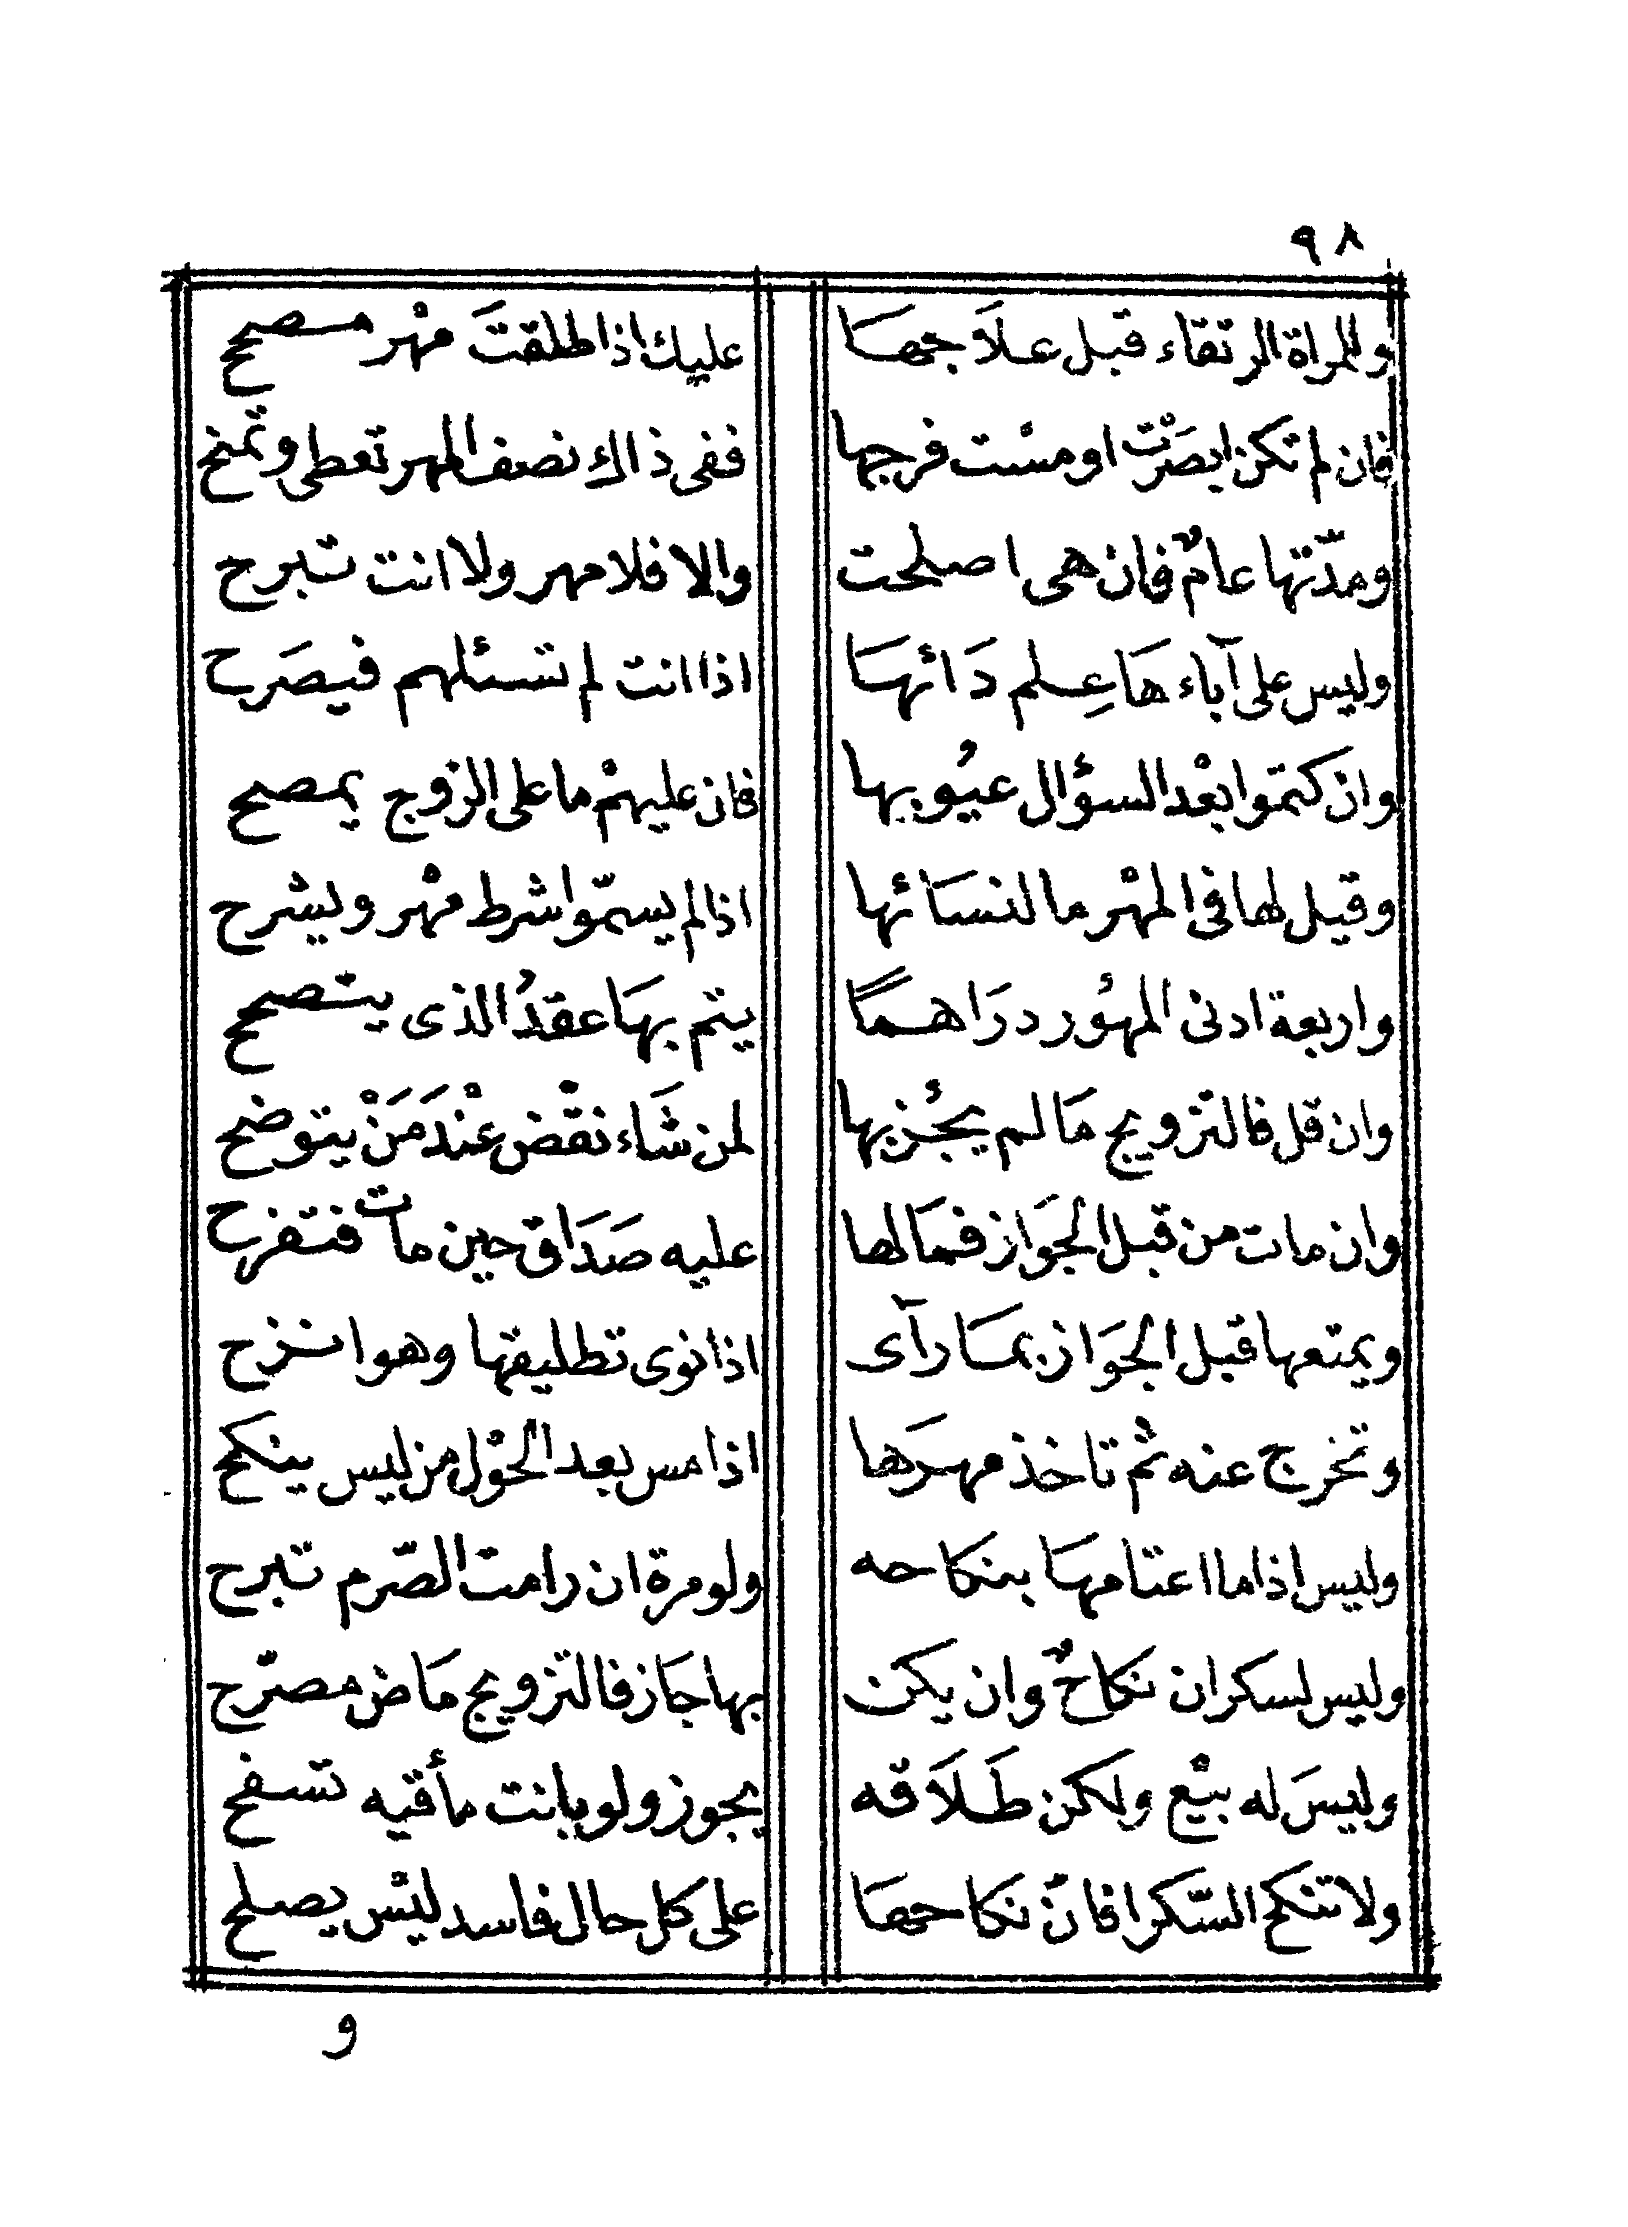 ٩٨
وللمراة الرتقاء قبل علَاجهَا عليك اذا طلقتَ مهْر مصحح
فان لم تكن ابصَرْت او مسْت فرجها ففى ذاك نصف المهر تعطى وتمنح
ومدّتها عامٌ فان هى اصلحت والا فلا مهر ولا انت تبرح
وليس على آباء هَا عِلم دَائهَا اذا انت لم تسئلهم فيصَرح
وان كتموا بعْد السؤال عيُوبها فان عليهمْ ما على الزوج يمصح
وقيل لها فى المهْر ما لنسَائها اذا لم يسمّوا شرط مهْر ويشرح
واربعة ادنى المهُور درَاهمًا يتم بهَا عقدُ الذى يتصحح
وان قل فالتزويج مَا لم يجُزبها لمن شَاء نقْض عنْدَ مَنْ يتوضح
وان مات من قبل الجوَاز فمَا لها عليه صَدَاق حين مات فتفرح
ويمتعها قبل الجوَاز بمَا رآى اذا نوى تطليقها وهو انزح
وتخرج عنه ثم تاخذ مهرَها اذا مس بعد الحوْل من ليس ينكح
وليس إذا ما اعتامهَا بنكاحه ولو مرة ان رامت الصّرم تبرح
وليس لسكران نكاحٌ وان يكن بها جَاز فالتزويج مَاض مصرّح
وليسَ له بيْع ولكن طَلَاقه يجوز ولو بانت مأقيه تسفح
ولا تنكح السّكرا فانّ نكاحهَا على كل حال فاسد ليْس يصلح
و